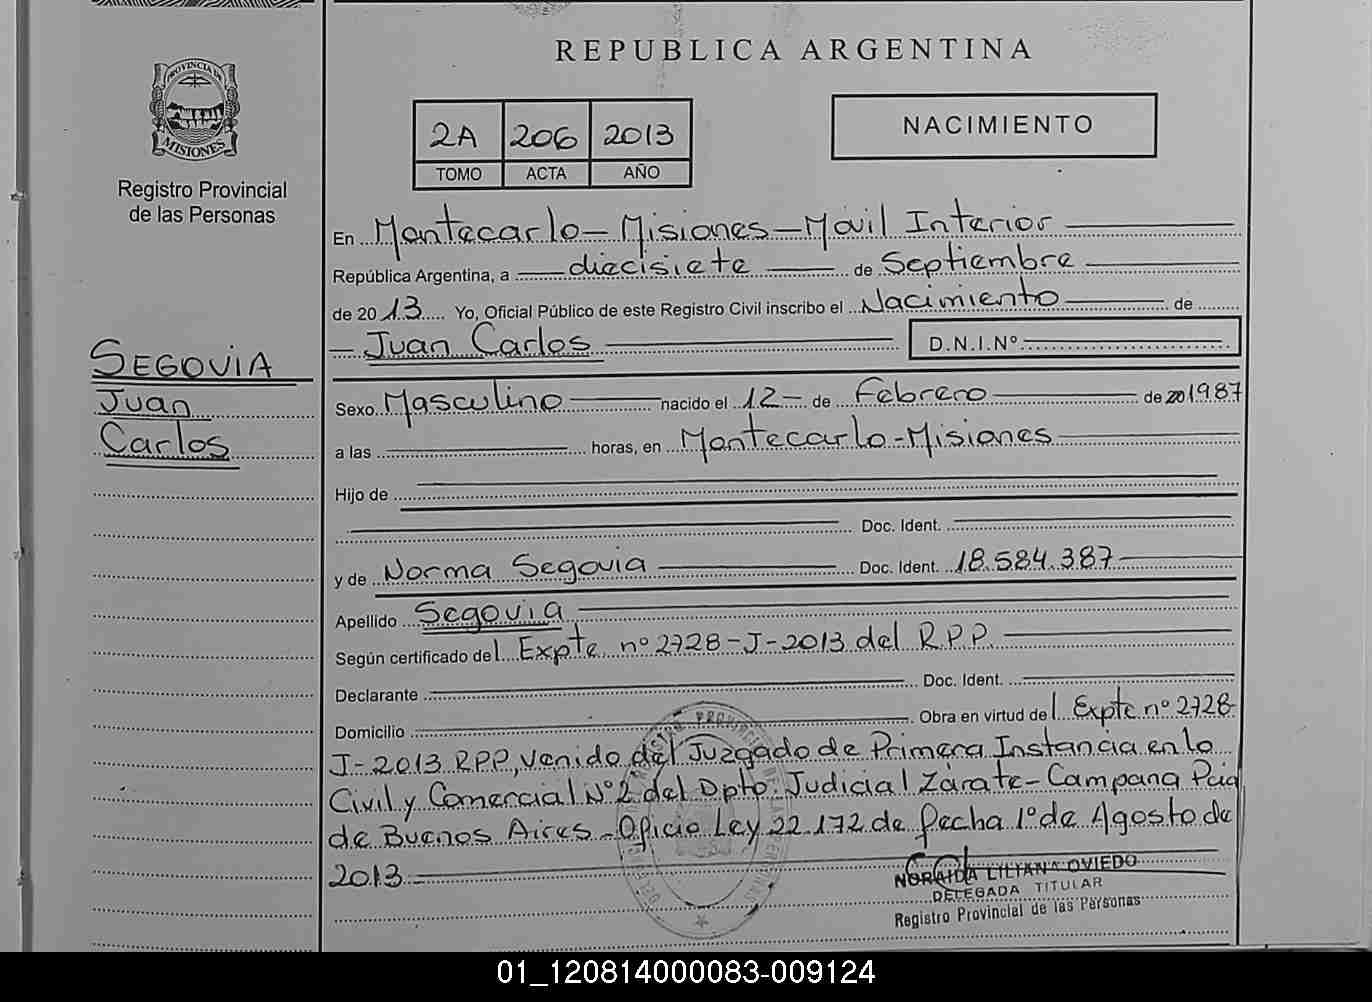 REPUBLICA ARGENTINA
PROVINCIA DE
MISIONES
Registro Provincial
de las Personas
2A 206 2013
TOMO ACTA AÑO
NACIMIENTO
En Montecarlo - Misiones - Móvil Interior
República Argentina, a diecisiete de Septiembre
de 2013 Yo, Oficial Público de este Registro Civil inscribo el Nacimiento de
Juan Carlos D.N.I.Nº
SEGOVIA
Juan
Carlos
Sexo Masculino nacido el 12 - de Febrero de 20 1987
a las horas, en Montecarlo - Misiones
Hijo de
Doc. Ident.
y de Norma Segovia Doc. Ident. 18.584.387
Apellido Segovia
Según certificado del Expte nº 2728-J-2013 del R.P.P.
Declarante Doc. Ident.
Domicilio Obra en virtud del Expte nº 2728-
J-2013 RPP, venido del Juzgado de Primera Instancia en lo
Civil y Comercial Nº2 del Dpto. Judicial Zárate - Campana Pcia
de Buenos Aires - Oficio Ley 22.172 de fecha 1º de Agosto de
2013
NORAIDA LILIANA OVIEDO
DELEGADA TITULAR
Registro Provincial de las Personas
01_120814000083-009124